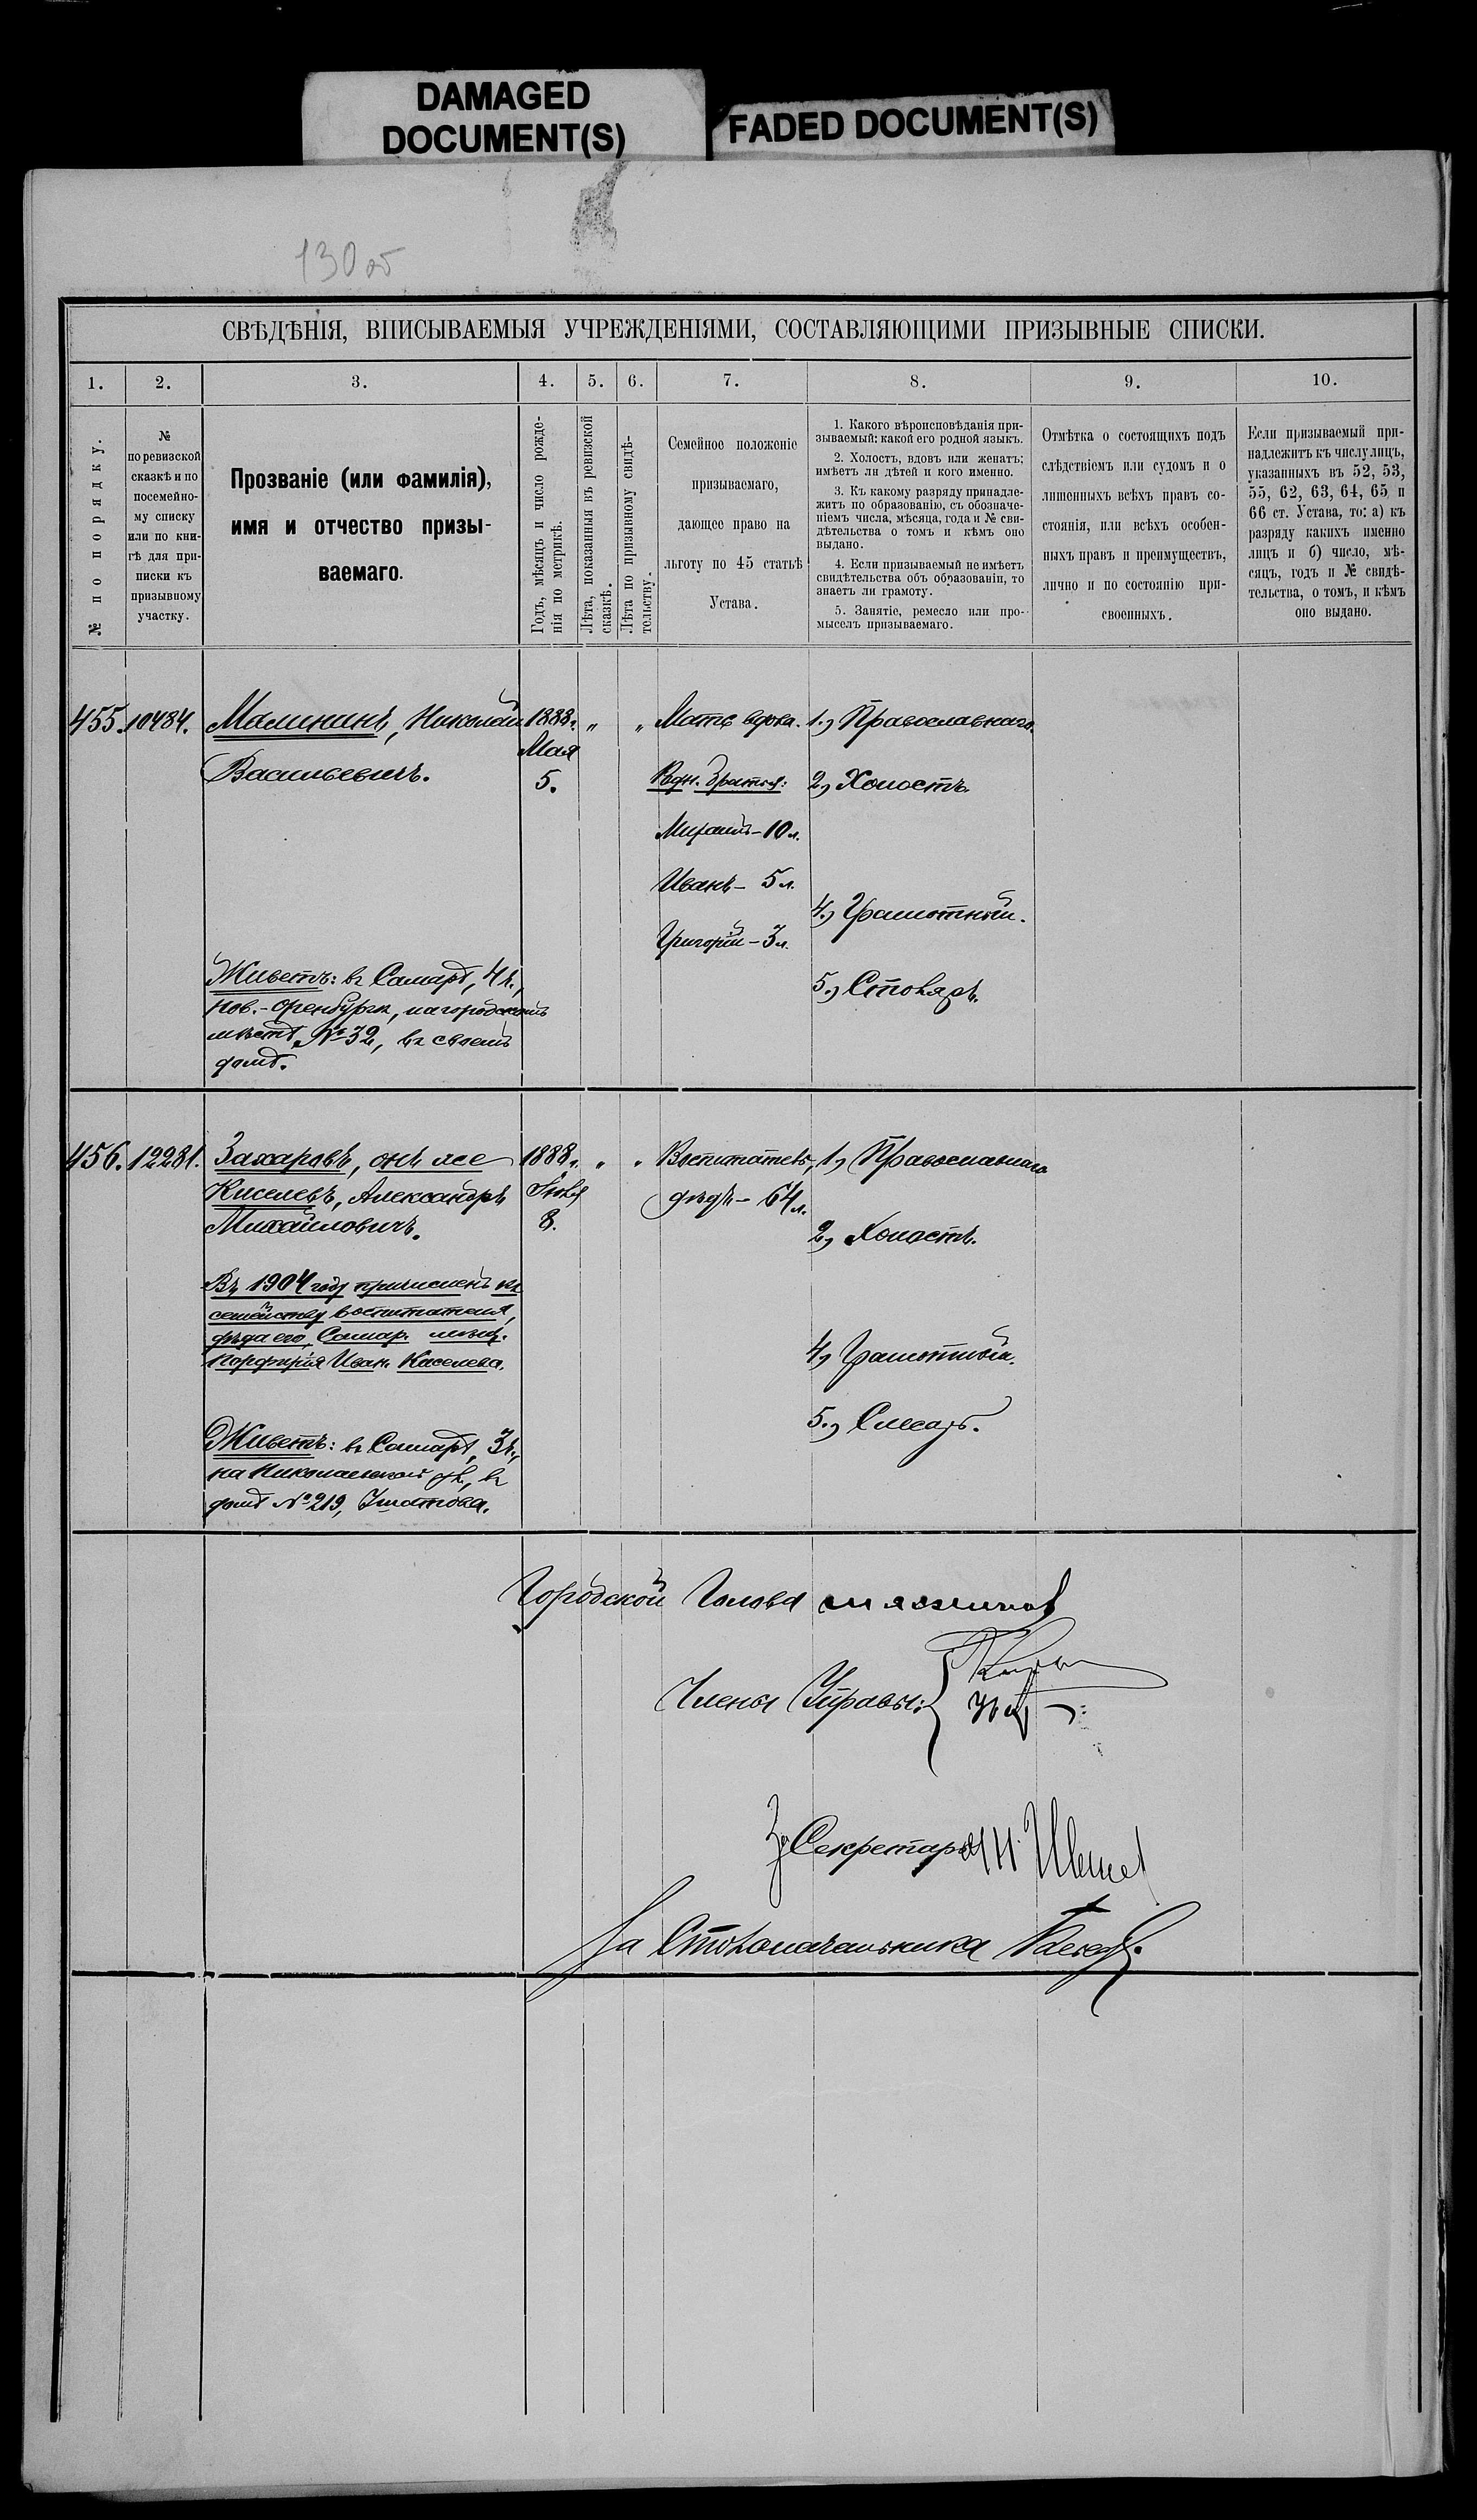 DAMAGED
DOCUMENT(S)
FADED DOCUMENT(S)
130 об
СВѢДѢНІЯ, ВПИСЫВАЕМЫЯ УЧРЕЖДЕНІЯМИ, СОСТАВЛЯЮЩИМИ ПРИЗЫВНЫЕ СПИСКИ.
1. 2. 3. 4. 5. 6. 7. 8. 9. 10.
№ по порядку.
№
по ревизской
сказкѣ и по
посемейно-
му списку
или по кни-
гѣ для при-
писки къ
призывному
участку.
Прозваніе (или фамилія),
имя и отчество призы-
ваемаго.
Годъ, мѣсяцъ и число рожде-
нія по метрикѣ.
Лѣта, показанныя въ ревизской
сказкѣ.
Лѣта по призывному свидѣ-
тельству.
Семейное положеніе
призываемаго,
дающее право на
льготу по 45 статьѣ
Устава.
1. Какого вѣроисповѣданія при-
зываемый; какой его родной языкъ.
2. Холостъ, вдовъ или женатъ;
имѣетъ ли дѣтей и кого именно.
3. Къ какому разряду принадле-
житъ по образованію, съ обозначе-
ніемъ числа, мѣсяца, года и № сви-
дѣтельства о томъ и кѣмъ оно
выдано.
4. Если призываемый не имѣетъ
свидѣтельства объ образованіи, то
знаетъ ли грамоту.
5. Занятіе, ремесло или про-
мыселъ призываемаго.
Отмѣтка о состоящихъ подъ
слѣдствіемъ или судомъ и о
лишенныхъ всѣхъ правъ со-
стоянія, или всѣхъ особен-
ныхъ правъ и преимуществъ,
лично и по состоянію при-
своенныхъ.
Если призываемый при-
надлежитъ къ числу лицъ,
указанныхъ въ 52, 53,
55, 62, 63, 64, 65 и
66 ст. Устава, то: а) къ
разряду какихъ именно
лицъ и б) число, мѣ-
сяцъ, годъ и № свидѣ-
тельства, о томъ, и кѣмъ
оно выдано.
455. 10484. Малининъ, Николай
Васильевичъ.
Живетъ: въ Самарѣ, 4 ч.,
Нов.-Оренбургк, на городскомъ
мѣстѣ, № 32, въ своемъ
домѣ.
1888 г.
Мая
5.
„ „
Мать вдова.
Родн. братья:
Михаилъ - 10 л.
Иванъ - 5 л.
Григорій - 3 л.
1.) Православнаго.
2.) Холостъ.
4.) Грамотный.
5.) Столяръ.
456. 12281. Захаровъ, онъ же
Киселевъ, Александръ
Михайловичъ.
Въ 1904 году причисленъ къ
семейству воспитателя,
дѣда его, Самар. мѣщ.
Порфирія Иван. Киселева.
Живетъ: въ Самарѣ, 3 ч.,
на Николаевской ул., въ
домѣ № 219,
1888 г.
Іюля
8.
„ „
Воспитатель,
дѣдъ - 64 л.
1.) Православнаго
2.) Холостъ.
4.) Грамотный.
5.) Слесарь.
Городской Голова
Члены Управы:
За Секретаря
За Столоначальника